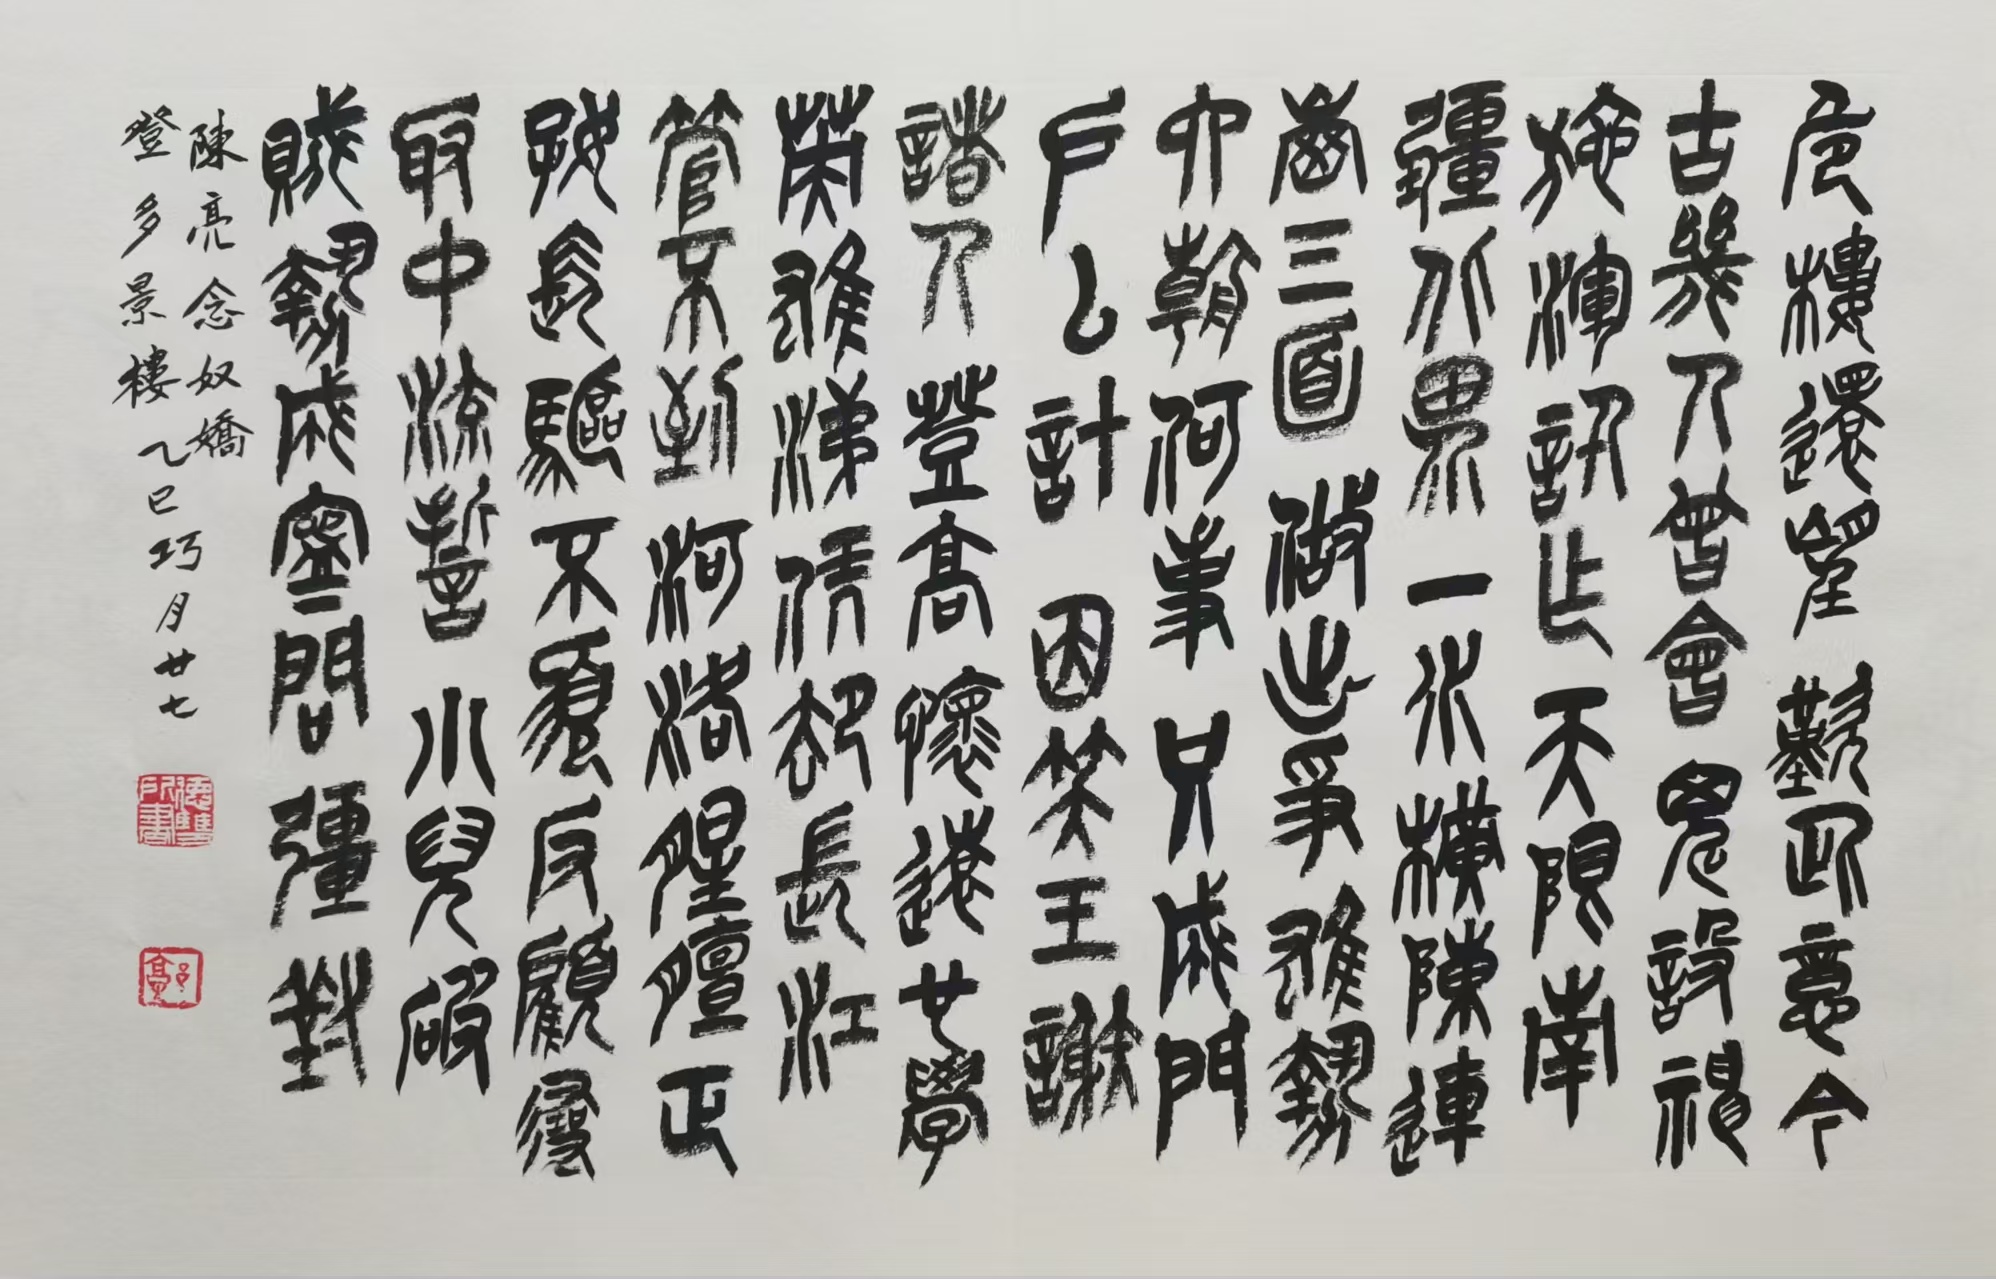 危樓還望歎此意今
古幾人曾會鬼設神
施渾認作天限南
疆北界一水橫陳連
崗三面做出爭雄勢
六朝何事只成門
戶私計因笑王謝
諸人登高懷遠也學
英雄涕憑却長江
管不到河洛腥膻正
好長驅不須反顧尋
取中流誓小兒破
賊勢成寧問彊對
陳亮念奴嬌
登多景樓乙巳巧月廿七